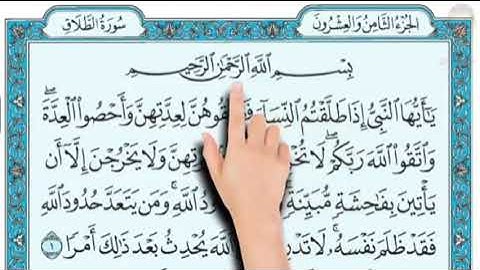 الجُزْءُ الثَّامِنُ وَالعِشْرُونَ
سُورَةُ الطَّلَاقِ
بِسْمِ ٱللَّهِ ٱلرَّحْمَٰنِ ٱلرَّحِيمِ
يَٰٓأَيُّهَا ٱلنَّبِيُّ إِذَا طَلَّقْتُمُ ٱلنِّسَآءَ لِعِدَّتِهِنَّ وَأَحْصُوا۟ ٱلْعِدَّةَۖ
وَٱتَّقُوا۟ ٱللَّهَ رَبَّكُمْۖ لَا وَلَا يَخْرُجْنَ إِلَّآ أَن
يَأْتِينَ بِفَٰحِشَةٍ مُّبَيِّنَةٍۚ ٱللَّهِۚ وَمَن يَتَعَدَّ حُدُودَ ٱللَّهِ
فَقَدْ ظَلَمَ نَفْسَهُۥۚ لَا ٱللَّهَ يُحْدِثُ بَعْدَ ذَٰلِكَ أَمْرًا ١